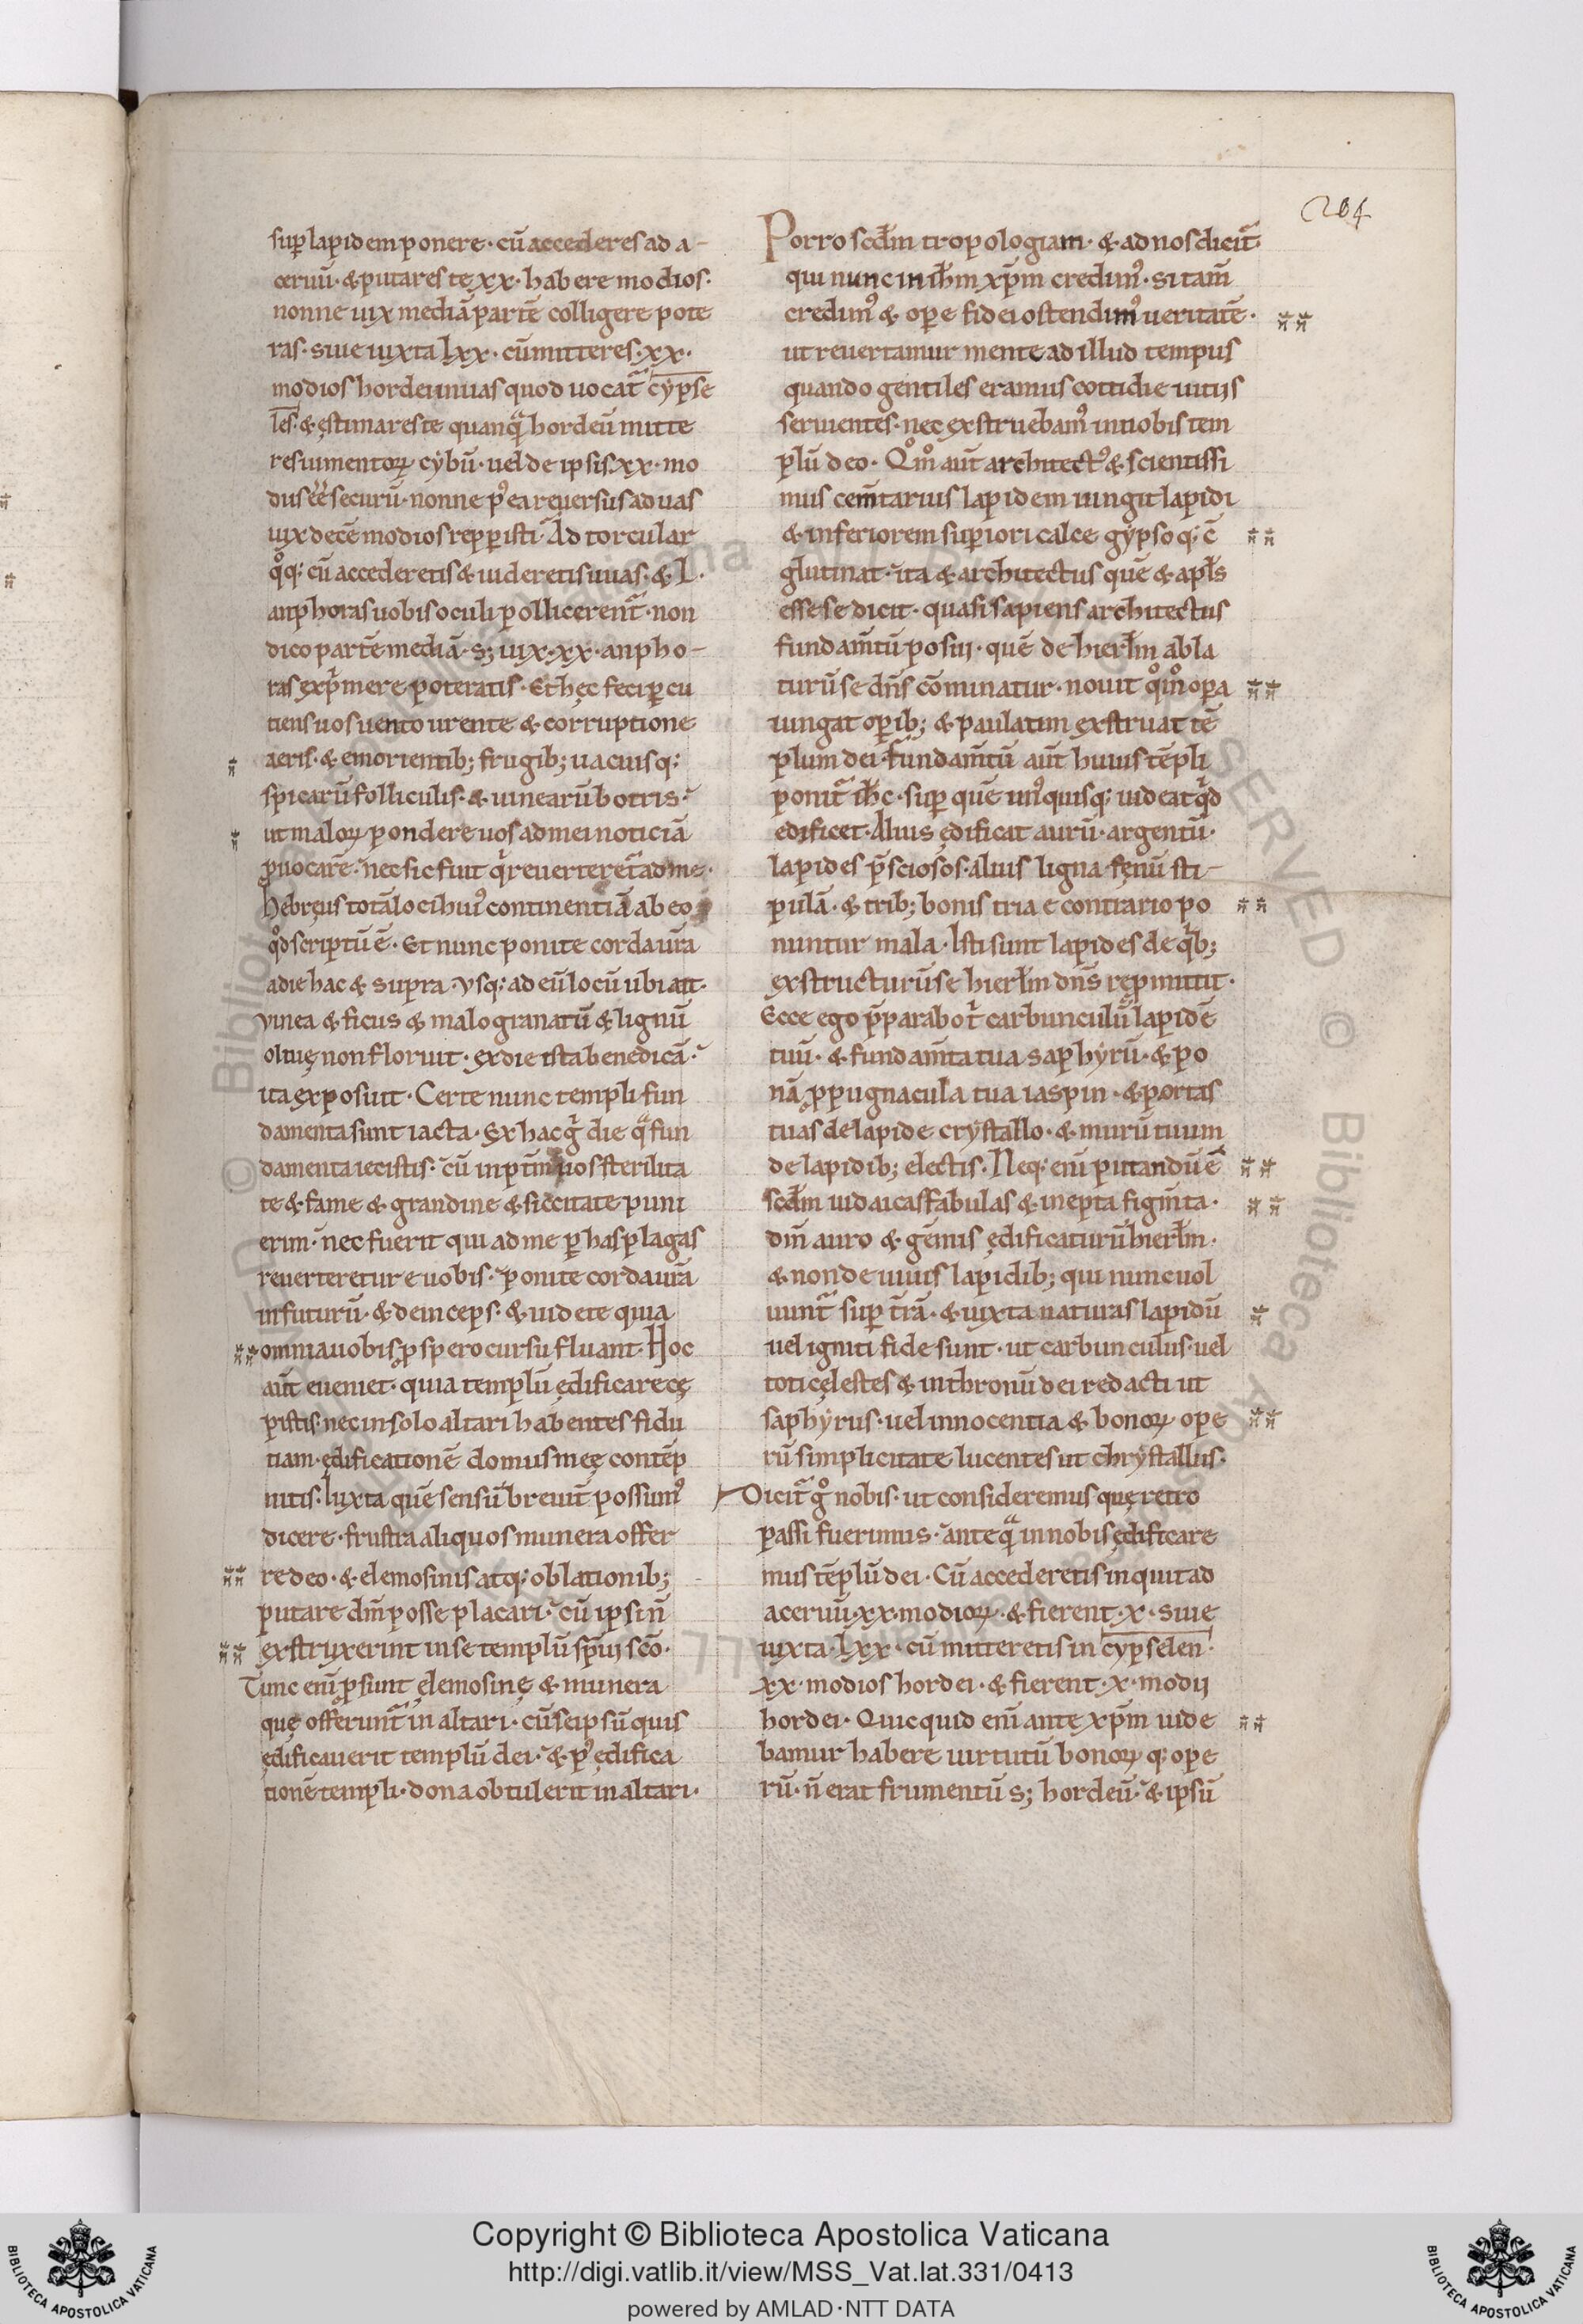 204
sup lapidem ponere · cū accederes ad a-
ceruū · & putares te xx · habere modios ·
nonne uix mediā partē colligere pote
ras · siue iuxta lxx · cū mitteres · xx ·
modios hordei in uas quod uocat̄ cypse
les · & ęstimares te quanq̄ hordeū mitte
res iumentoꝝ cybū · uel de ipsis xx · mo
dus eē̄ securū · nonne pꝰ ea reuersus ad uas
uix decē modios repperisti · Ad torcular
qͦq; cū accederetis & uideretis uuas · & L ·
anphoras uobis oculi pollicerent̄ · non
dico partē mediā · s; uix · xx · anpho-
ras exp̄mere poteratis · Et hęc feci ꝑcu
tiens uos uento urente & corruptione
aeris · & emorientib; frugib; uacuisq;
spicarū folliculis · & uinearū botris ·
ut maloꝝ pondere uos ad mei noticiā
ꝓuocarē · nec sic fuit qͥ reuerteret̄ ad me ·
Hebręus totā loci huiꝰ continentiā ab eo
qͦd scriptū ē · Et nunc ponite corda ur̄a
a die hac & supra · vsq; ad eū locū ubi ait ·
vinea & ficus & malogranatū & lignū
oliuę non floruit · ex die ista benedicā ·
ita exposuit · Certe nunc templi fun
damenta sunt iacta · Ex hac gͥ die qͣ fun
damenta iecistis · cū inp̄tm̄ uos sterilita
te & fame & grandine & siccitate puni
erim · nec fuerit qui ad me ꝑ has plagas
reuerteretur e uobis · ponite corda ur̄a
in futurū · & deinceps · & uidete quia
omnia uobis ꝓspero cursu fluant · Hoc
aūt eueniet · quia templū ędificare cę
pistis · nec in solo altari habentes fidu
tiam · ędificationē domus meę contēp
nitis · Iuxta quē sensū breuit̄ possumꝰ
dicere · frustra aliquos munera offer
re deo · & elemosinis atq; oblationib;
putare dm̄ posse placari · cū ipsi n̄
exstruxerint in se templū sp̄ui sc̄o ·
Tunc eni̅ ꝓsunt ęlemosinę & munera
quę offerunt̄ in altari · cū seipsū quis
ędificauerit templū dei · & pꝰ ędifica
tionē templi · dona obtulerit in altari ·
Porro scd̄m tropologiam · & ad nos dicit̄
qui nunc in ih̄m xp̄m credimꝰ · si tam̄
credimꝰ & opere fidei ostendimꝰ ueritatē ·
ut reuertamur mente ad illud tempus
quando gentiles eramus cottidie uitiis
seruientes · nec exstruebamꝰ in nobis tem
plū deo · Qͦmͦ aūt architectꝰ & scientissi
mus cem̄tarius lapidem iungit lapidi
& inferiorem superiori calce gypsoq; c̄
glutinat · ita & architectus quē & apl̄s
esse se dicit · quasi sapiens architectus
fundam̄tū posui · quē de hierl̄m abla
turū se dn̄s cōminatur · nouit qͦmͦ opera
iungat operib; & paulatim exstruat tē
plum dei · fundam̄tū aūt huius tēpli
ponit̄ ih̄c · super quē unꝰquisq; uideat qͥd
edificet · Alius ędificat aurū · argentū ·
lapides p̄sciosos · alius ligna fęnū sti-
pulā · & trib; bonis tria e contrario po
nuntur mala · Isti sunt lapides de qͥb;
exstructurū se hierl̄m dn̄s repmittit ·
Ecce ego p̄parabo tͥ carbunculū lapidē
tuū · & fundam̄ta tua saphyrū · & po
nā ꝓpugnacula tua iaspin · & portas
tuas de lapide crystallo · & murū tuum
de lapidib; electis · Neq; eni̅ putandū ē
scd̄m iudaicas fabulas & inepta figm̄ta ·
dm̄ auro & gēmis ędificaturū hierl̄m ·
& non de uiuis lapidib; qui nunc uol
uunt̄ super t̄rā · & iuxta naturas lapidū
uel igniti fide sunt · ut carbunculus · uel
toti cęlestes & in thronū dei redacti ut
saphyrus · uel innocentia & bonoꝝ ope
rū simplicitate lucentes ut chrystallus ·
Dicit̄ gͦ nobis · ut consideremus quę retro
passi fuerimus · anteqͣ in nobis ędificare
mus tēplū dei · Cū accederetis inquit ad
aceruū · xx · modioꝝ · & fierent · x · siue
iuxta · lxx · cū mitteretis in cypselen ·
xx · modios hordei · & fierent · x · modii
hordei · Quicquid eni̅ ante xp̄m uide
bamur habere uirtutū bonoꝝ q; ope
rū · n̄ erat frumentū s; hordeū · & ipsū
Copyright © Biblioteca Apostolica Vaticana
http://digi.vatlib.it/view/MSS_Vat.lat.331/0413
powered by AMLAD·NTT DATA
BIBLIOTECA APOSTOLICA VATICANA
BIBLIOTECA APOSTOLICA VATICANA